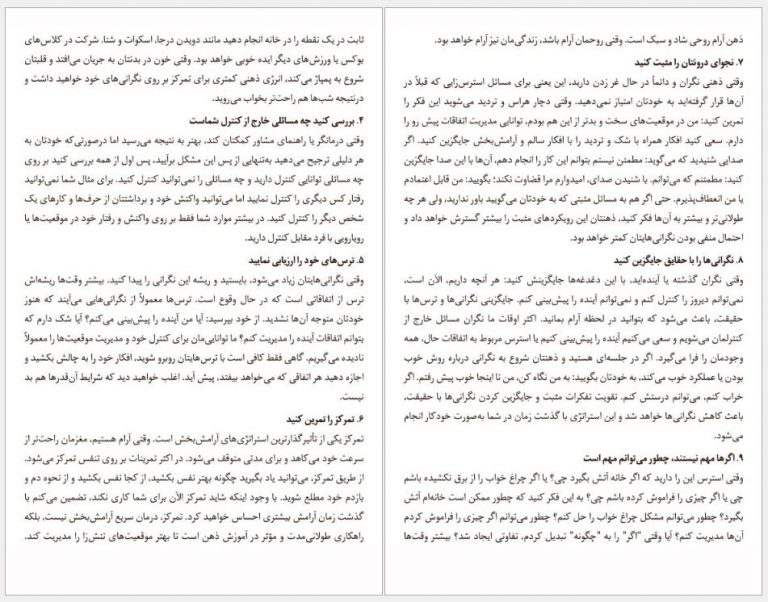 ثابت در یک نقطه را در خانه انجام دهید مانند دویدن درجا، اسکوات و شنا. شرکت در کلاس‌های
بوکس یا ورزش‌های دیگر ایده خوبی خواهد بود. وقتی خون در بدنتان به جریان می‌افتد و قلبتان
شروع به پمپاژ می‌کند، انرژی ذهنی کمتری برای تمرکز بر روی نگرانی‌های خود خواهید داشت و
درنتیجه شب‌ها هم راحت‌تر بخواب می‌روید.
۴. بررسی کنید چه مسائلی خارج از کنترل شماست
وقتی درمانگر یا راهنمای مشاور کمکتان کند، بهتر به نتیجه می‌رسید اما درصورتی‌که خودتان به
هر دلیلی ترجیح می‌دهید به‌تنهایی از پس این مشکل برآیید، پس اول از همه بررسی کنید بر روی
چه مسائلی توانایی کنترل دارید و چه مسائلی را نمی‌توانید کنترل کنید. برای مثال شما نمی‌توانید
رفتار کس دیگری را کنترل نمایید اما می‌توانید واکنش خود و برداشتتان از حرف‌ها و کارهای یک
شخص دیگر را کنترل کنید. در بیشتر موارد شما فقط بر روی واکنش و رفتار خود در موقعیت‌ها یا
رویارویی با فرد مقابل کنترل دارید.
۵. ترس‌های خود را ارزیابی نمایید
وقتی نگرانی‌هایتان زیاد می‌شود، بایستید و ریشه این نگرانی را پیدا کنید. بیشتر وقت‌ها ریشه‌اش
ترس از اتفاقاتی است که در حال وقوع است. ترس‌ها معمولاً از نگرانی‌هایی می‌آیند که هنوز
خودتان متوجه آن‌ها نشدید. از خود بپرسید: آیا من آینده را پیش‌بینی می‌کنم؟ آیا شک دارم که
بتوانم اتفاقات آینده را مدیریت کنم؟ ما توانایی‌مان برای کنترل خود و مدیریت موقعیت‌ها را معمولاً
نادیده می‌گیریم. گاهی فقط کافی است با ترس‌هایتان روبرو شوید، افکار خود را به چالش بکشید و
اجازه دهید هر اتفاقی که می‌خواهد بیفتد، پیش آید. اغلب خواهید دید که شرایط آن‌قدرها هم بد
نیست.
۶. تمرکز را تمرین کنید
تمرکز یکی از تأثیرگذارترین استراتژی‌های آرامش‌بخش است. وقتی آرام هستیم، مغزمان راحت‌تر از
سرعت خود می‌کاهد و برای مدتی متوقف می‌شود. در اکثر تمرینات بر روی تنفس تمرکز می‌شود.
از طریق تمرکز، می‌توانید یاد بگیرید چگونه بهتر نفس بکشید، از کجا نفس بکشید و از نحوه دم و
بازدم خود مطلع شوید. با وجود اینکه شاید تمرکز الآن برای شما کاری نکند، تضمین می‌کنم با
گذشت زمان آرامش بیشتری احساس خواهید کرد. تمرکز، درمان سریع آرامش‌بخش نیست، بلکه
راهکاری طولانی‌مدت و مؤثر در آموزش ذهن است تا بهتر موقعیت‌های تنش‌زا را مدیریت کند.
ذهن آرام روحی شاد و سبک است. وقتی روحمان آرام باشد، زندگی‌مان نیز آرام خواهد بود.
۷. نجوای درونتان را مثبت کنید
وقتی ذهنی نگران و دائماً در حال غر زدن دارید، این یعنی برای مسائل استرس‌زایی که قبلاً در
آن‌ها قرار گرفته‌اید به خودتان امتیاز نمی‌دهید. وقتی دچار هراس و تردید می‌شوید این فکر را
تمرین کنید: من در موقعیت‌های سخت و بدتر از این هم بودم، توانایی مدیریت اتفاقات پیش رو را
دارم. سعی کنید افکار همراه با شک و تردید را با افکار سالم و آرامش‌بخش جایگزین کنید. اگر
صدایی شنیدید که می‌گوید: مطمئن نیستم بتوانم این کار را انجام دهم، آن‌ها با این صدا جایگزین
کنید: مطمئنم که می‌توانم. با شنیدن صدای، امیدوارم مرا قضاوت نکند؛ بگویید: من قابل اعتمادم
یا من انعطاف‌پذیرم. حتی اگر هم به مسائل مثبتی که به خودتان می‌گویید باور ندارید، ولی هر چه
طولانی‌تر و بیشتر به آن‌ها فکر کنید، ذهنتان این رویکردهای مثبت را بیشتر گسترش خواهد داد و
احتمال منفی بودن نگرانی‌هایتان کمتر خواهد بود.
۸. نگرانی‌ها را با حقایق جایگزین کنید
وقتی نگران گذشته یا آینده‌اید، با این دغدغه‌ها جایگزینش کنید: هر آنچه داریم، الآن است،
نمی‌توانم دیروز را کنترل کنم و نمی‌توانم آینده را پیش‌بینی کنم. جایگزینی نگرانی‌ها و ترس‌ها با
حقیقت، باعث می‌شود که بتوانید در لحظه آرام بمانید. اکثر اوقات ما نگران مسائل خارج از
کنترلمان می‌شویم و سعی می‌کنیم آینده را پیش‌بینی کنیم یا استرس مربوط به اتفاقات حال، همه
وجودمان را فرا می‌گیرد. اگر در جلسه‌ای هستید و ذهنتان شروع به نگرانی درباره روش خوب
بودن یا عملکرد خوب می‌کند، به خودتان بگویید: به من نگاه کن، من تا اینجا خوب پیش رفتم. اگر
خراب کنم، می‌توانم درستش کنم. تقویت تفکرات مثبت و جایگزین کردن نگرانی‌ها با حقیقت،
باعث کاهش نگرانی‌ها خواهد شد و این استراتژی با گذشت زمان در شما به‌صورت خودکار انجام
می‌شود.
۹. اگرها مهم نیستند، چطور می‌توانم مهم است
وقتی استرس این را دارید که اگر خانه آتش بگیرد چی؟ یا اگر چراغ خواب را از برق نکشیده باشم
چی یا اگر چیزی را فراموش کرده باشم چی؟ به این فکر کنید که چطور ممکن است خانه‌ام آتش
بگیرد؟ چطور می‌توانم مشکل چراغ خواب را حل کنم؟ چطور می‌توانم اگر چیزی را فراموش کردم
آن‌ها مدیریت کنم؟ آیا وقتی "اگر" را به "چگونه" تبدیل کردم، تفاوتی ایجاد شد؟ بیشتر وقت‌ها